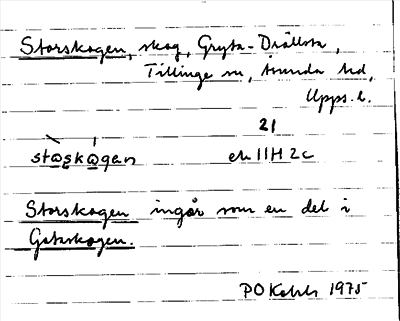 Storskogen, skog, Gryta-Drällsta,
Tillinge sn, Åsunda hd,
Upps. l.
21
stɷskɷgan ek 11H 2c
Storskogen ingår som en del i
Gataskogen.
PO 1975